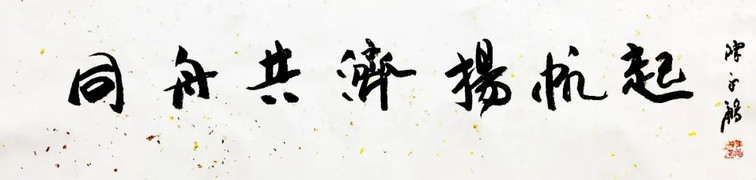 同舟共濟揚帆起